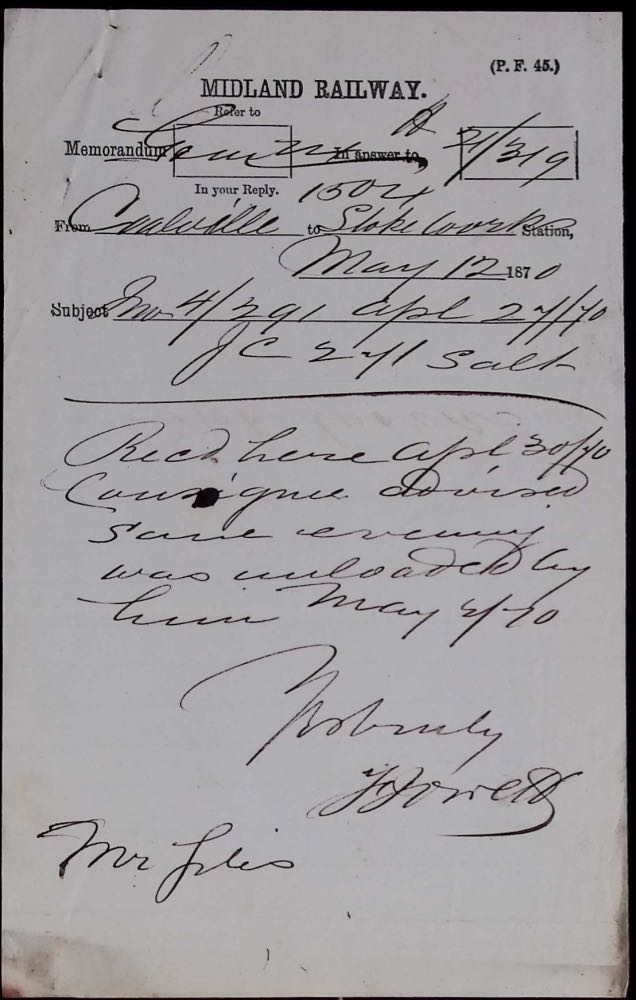 (P. F. 45.)
MIDLAND RAILWAY.
Refer to
Memorandum In answer to, 21/319
In your Reply. 1504
From Coalville to Stoke Works Station,
May 12 1870
Subject Inv 4/291 Apl 27/70
JC 271 Salt
Recd here Apl 30/70
Consignee advised
same evening
was unloaded by
him May 2/70
Yrs truly
F Jowett
Mr Giles